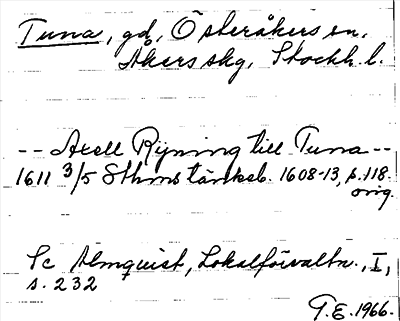 Tuna, gd, Österåkers sn,
Åkers skg, Stockh. l.
-- Axell Ryning till Tuna --
1611 3/5 Sthms tänkeb. 1608-13, p. 118.
orig.
Sc Almquist, Lokalförvaltn., I,
s. 232
T.E. 1966.